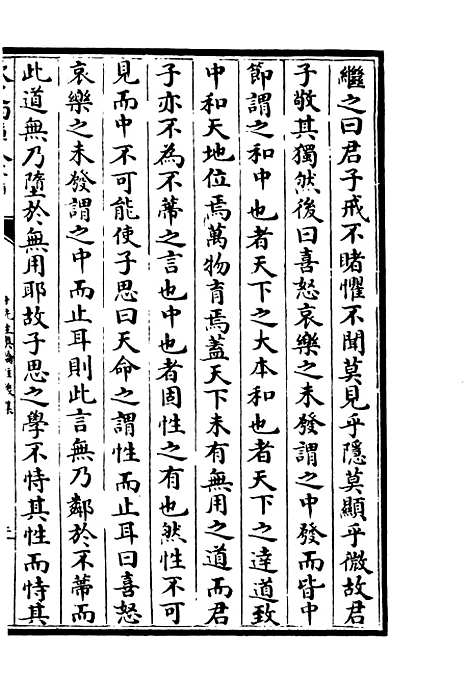 繼之曰君子戒不睹懼不聞莫見乎隱莫顯乎微故君
子敬其獨然後曰喜怒哀樂之未發謂之中發而皆中
節謂之和中也者天下之大本和也者天下之達道致
中和天地位焉萬物育焉蓋天下未有無用之道而君
子亦不為不蔕之言也中也者固性之有也然性不可
見而中不可能使子思曰天命之謂性而止耳曰喜怒
哀樂之未發謂之中而止耳則此言無乃鄰於不蔕而
此道無乃墮於無用耶故子思之學不恃其性而恃其